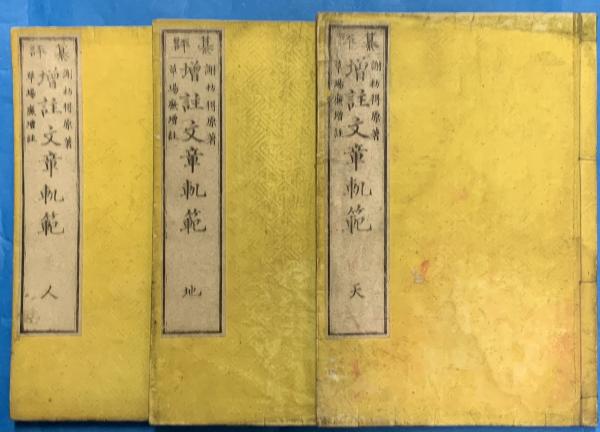 纂評
謝枋得原著
增註文章軌範
草場廉增註
天
纂評
謝枋得原著
增註文章軌範
草場廉增註
地
纂評
謝枋得原著
增註文章軌範
草場廉增註
人